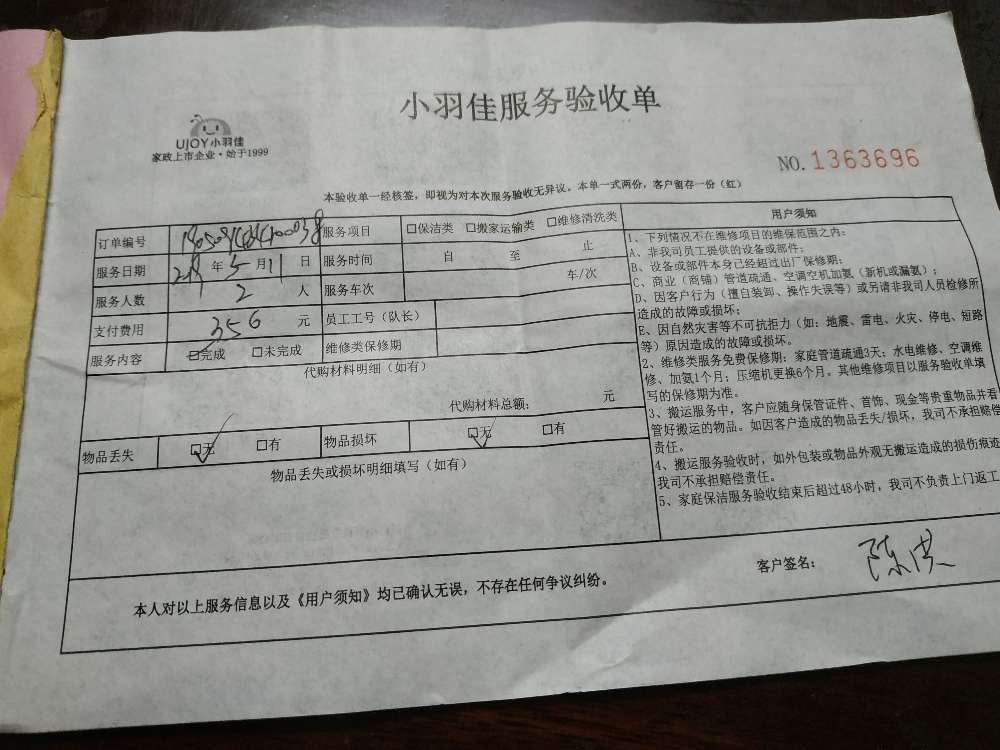 小羽佳服务验收单
UJOY小羽佳
家政上市企业·始于1999
NO. 1363696
本验收单一经核签，即视为对本次服务验收无异议。本单一式两份，客户留存一份（红）
订单编号 服务项目 □保洁类 □搬家运输类 □维修清洗类
服务日期 年 5 月 11 日 服务时间 自 至 止
服务人数 2 人 服务车次 车/次
支付费用 356 元 员工工号（队长）
服务内容 □完成 □未完成 维修类保修期
代购材料明细（如有）
代购材料总额： 元
物品丢失 □无 □有 物品损坏 □无 □有
物品丢失或损坏明细填写（如有）
用户须知
1、下列情况不在维修项目的维保范围之内：
A、非我司员工提供的设备或部件；
B、设备或部件本身已经超过出厂保修期；
C、商业（商铺）管道疏通、空调空机加氨（新机或漏氨）；
D、因客户行为（擅自装卸、操作失误等）或另请非我司人员检修所
造成的故障或损坏；
E、因自然灾害等不可抗拒力（如：地震、雷电、火灾、停电、短路
等）原因造成的故障或损坏。
2、维修类服务免费保修期：家庭管道疏通3天；水电维修、空调维
修、加氨1个月；压缩机更换6个月。其他维修项目以服务验收单填
写的保修期为准。
3、搬运服务中，客户应随身保管证件、首饰、现金等贵重物品并看
管好搬运的物品。如因客户造成的物品丢失/损坏，我司不承担赔偿
责任。
4、搬运服务验收时，如外包装或物品外观无搬运造成的损伤痕迹
我司不承担赔偿责任。
5、家庭保洁服务验收结束后超过48小时，我司不负责上门返工
本人对以上服务信息以及《用户须知》均已确认无误，不存在任何争议纠纷。
客户签名： 陈洪